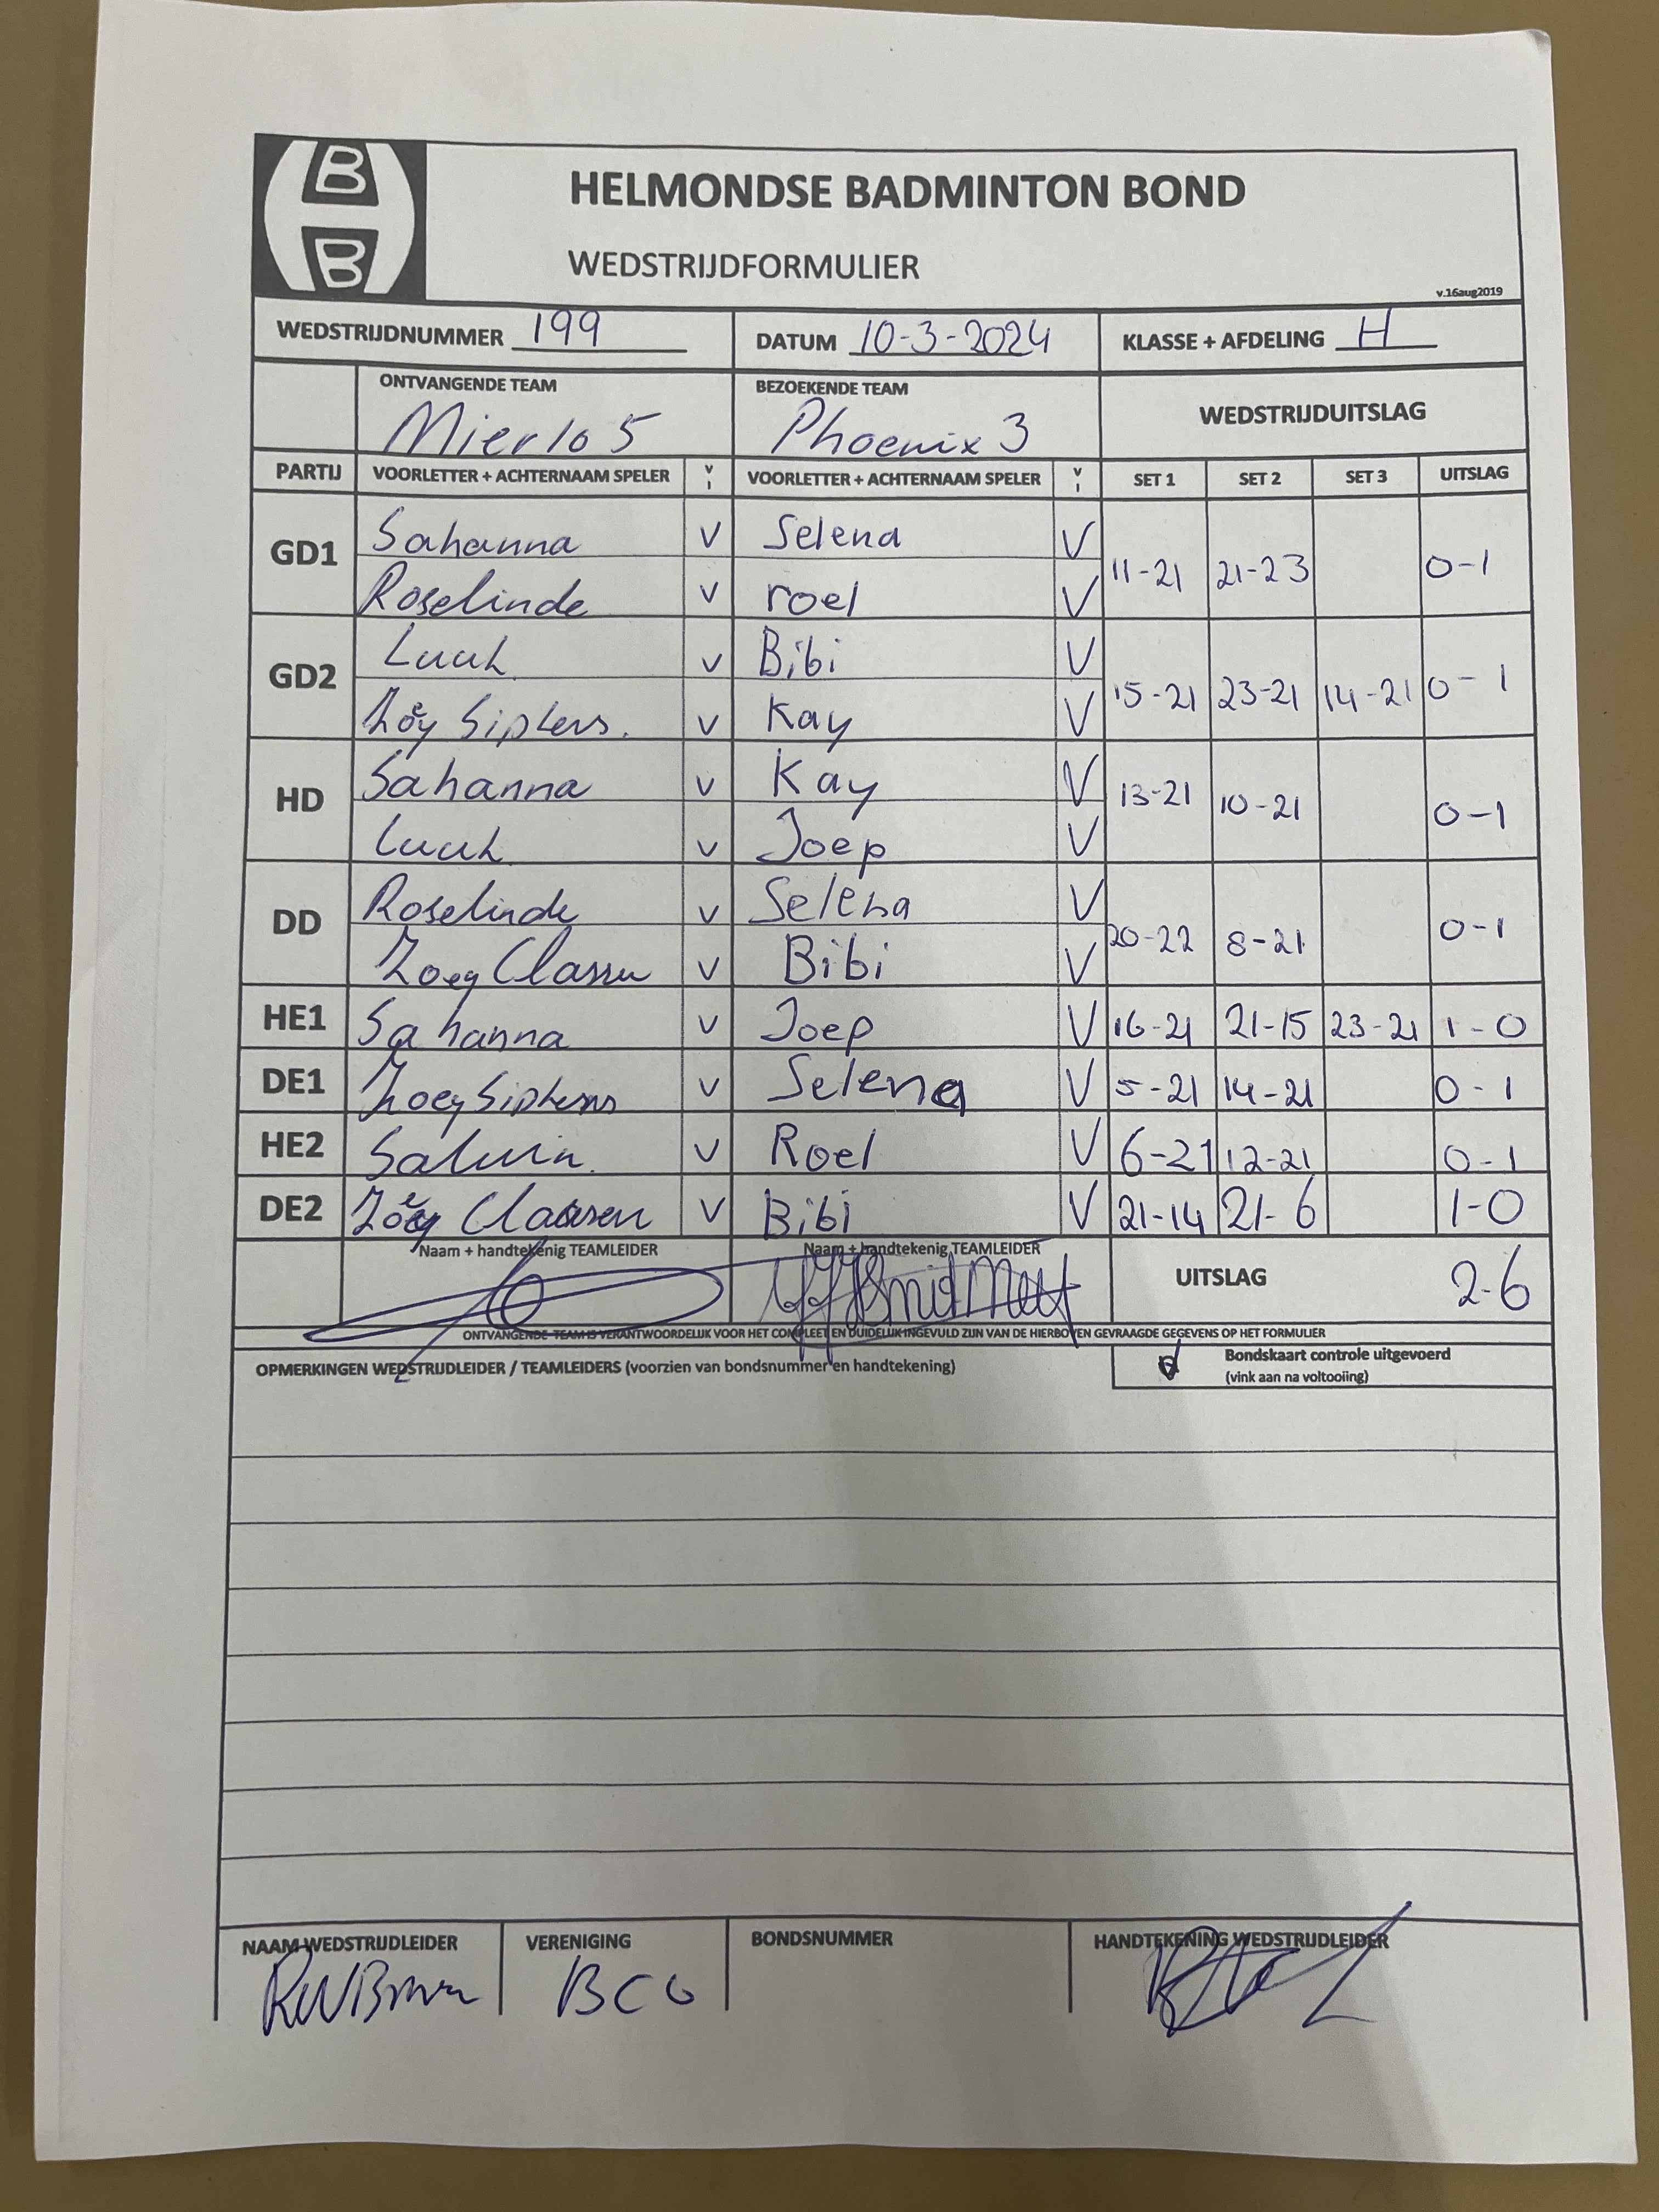 B
B
HELMONDSE BADMINTON BOND
WEDSTRIJDFORMULIER
v.16aug2019
WEDSTRIJDNUMMER 199 DATUM 10-3-2024 KLASSE + AFDELING H
ONTVANGENDE TEAM BEZOEKENDE TEAM WEDSTRIJDUITSLAG
Mierlo 5 Phoenix 3
PARTIJ VOORLETTER + ACHTERNAAM SPELER V I VOORLETTER + ACHTERNAAM SPELER V I SET 1 SET 2 SET 3 UITSLAG
GD1 Sahanna V Selena V 11-21 21-23 0-1
Roselinde V roel V
GD2 Luuk V Bibi V 15-21 23-21 14-21 0-1
Zoëy Sipkens. V Kay V
HD Sahanna V Kay V 13-21 10-21 0-1
Luuk V Joep V
DD Roselinde V Selena V 20-22 8-21 0-1
Zoey Classen V Bibi V
HE1 Sahanna V Joep V 16-21 21-15 23-21 1-0
DE1 Zoey Sipkens V Selena V 5-21 14-21 0-1
HE2 V Roel V 6-21 12-21 0-1
DE2 Zoëy Claassen V Bibi V 21-14 21-6 1-0
Naam + handtekenig TEAMLEIDER Naam + handtekenig TEAMLEIDER UITSLAG 2-6
ONTVANGENDE TEAM IS VERANTWOORDELIJK VOOR HET COMPLEET EN DUIDELIJK INGEVULD ZIJN VAN DE HIERBOVEN GEVRAAGDE GEGEVENS OP HET FORMULIER
OPMERKINGEN WEDSTRIJDLEIDER / TEAMLEIDERS (voorzien van bondsnummer en handtekening) Bondskaart controle uitgevoerd
(vink aan na voltooiing)
NAAM WEDSTRIJDLEIDER VERENIGING BONDSNUMMER HANDTEKENING WEDSTRIJDLEIDER